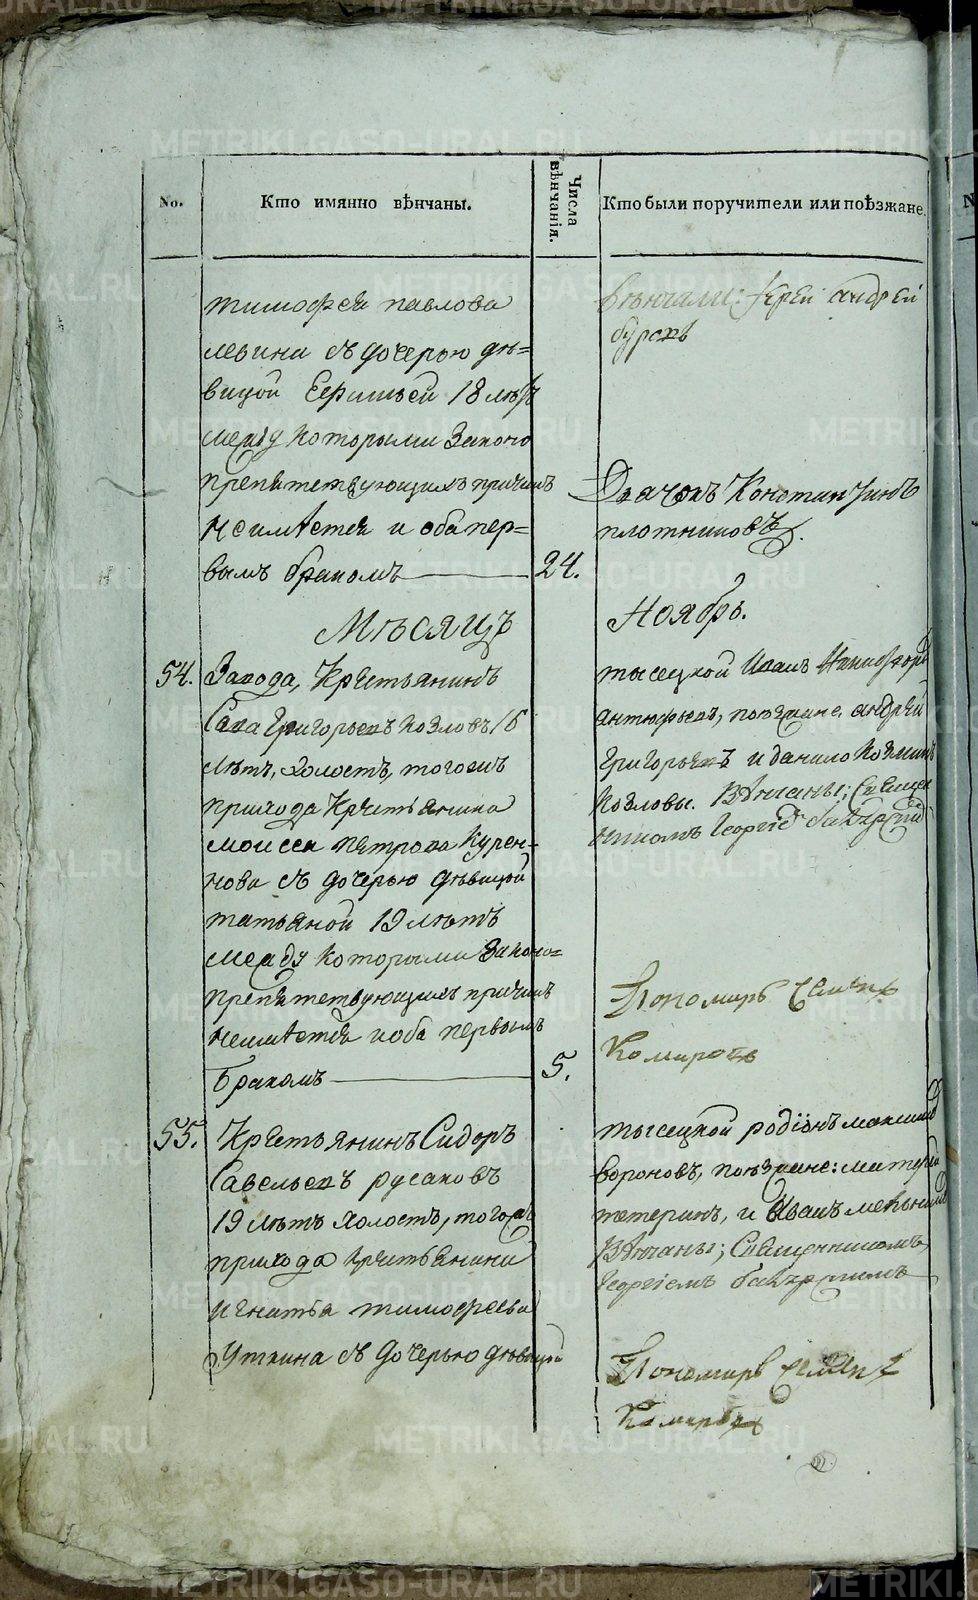 No.
Кто имянно вѣнчаны.
Числа вѣнчанія.
Кто были поручители или поѣзжане.
тимофея павлова
левина съ дочерью дѣ=
вицой Ефимьей 18 лѣтъ
между которыми законо
препятствующихъ причинъ
неимѣется и оба пер=
вымъ бракомъ
24.
вѣнчали: Іерей андрей
Дьячокъ Константинъ
плотниковъ.
Мѣсяцъ
Ноябрь.
54.
Завода, Крестьянинъ
Сава Григорьевъ Козловъ 16
лѣтъ, холостъ, тогожъ
прихода Крестьянина
моисея петрова Курен-
нова съ дочерью дѣвицой
татьяной 19 лѣтъ
между которыми законо=
препятствующихъ причинъ
неимѣется иоба первымъ
бракомъ
5.
тысецкой Иванъ
антюфьевъ, поезжане. андрей
Григорьевъ и данило
Козловы. Вѣнчаны; Священ
никомъ Георгіе
Пономарь Семенъ
Комаровъ
55.
Крестьянинъ Сидоръ
Савельевъ русаковъ
19 лѣтъ холостъ, тогожъ
прихода крестьянина
игнатья тимофеева
уткина съ дочерью дѣвицой
тысецкой родіонъ
вороновъ, поезжане:
тетеринъ, и Иванъ
Вѣнчаны; Священникомъ
Георгіемъ
Пономарь Семенъ
Комаровъ
METRIKI.GASO-URAL.RU